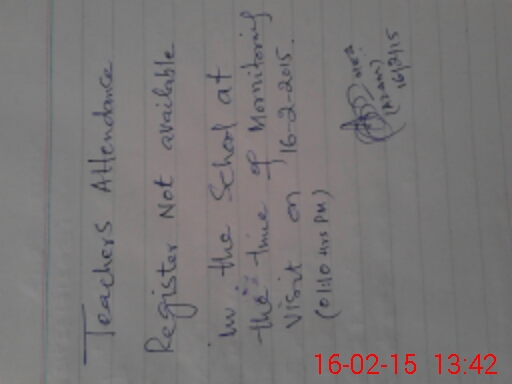 Teachers Attendance
Register Not available
in the School at
the time of Mornitoring
Visit on 16-2-2015.
(01:10 Hrs PM)
(Azam)
16/2/15
16-02-15 13:42